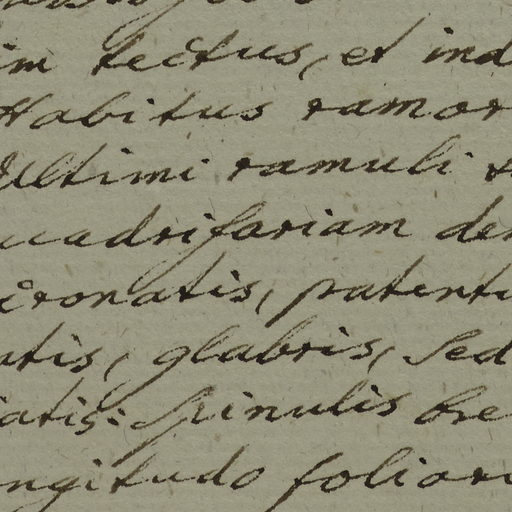 im tectus, et ind
Habitus ramor
Ultimi ramuli
uadrifariam den
cronatis, patenti
atis, glabris, sed
iatis: spinulis bre
ngitudo folior